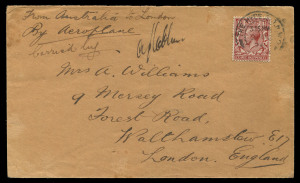 From Australia to London
By Aeroplane
carried by
Mrs A. Williams
9 Mersey Road
Forest Road,
Walthamstow E17
London. England